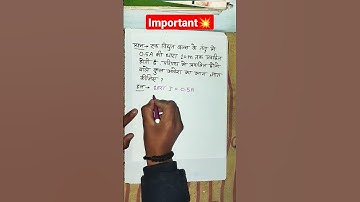 Important💥
प्रश्न → एक विद्युत बल्ब के तंतु में
0.5A की धारा 10m तक प्रवाहित
होती है विद्युत परिपथ से प्रवाहित होने
वाले कुल आवेश का मान ज्ञात
कीजिए ?
हल → धारा I = 0.5A